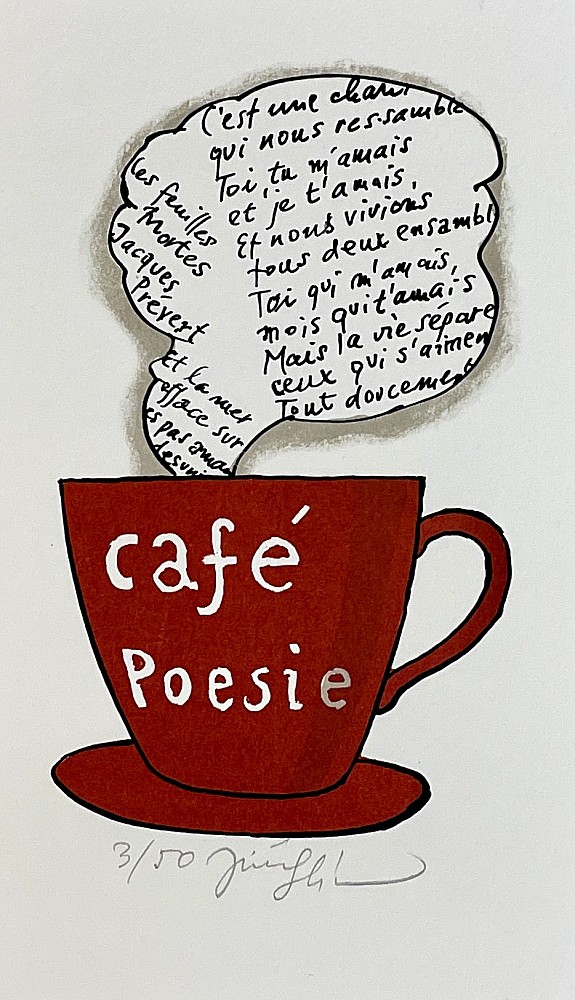 C'est une chan
qui nous ressemble
Toi, tu m'amais
et je t'amais,
Et nous vivions
tous deux ensembl
Toi qui m'amais,
mois qui t'amais
Mais la vie sépare
ceux qui s'aimen
Tout doucement
Les feuilles
Mortes
Jacques
Prévert
Et la mer
efface sur
es pas
desuni
café
Poesie
3/50